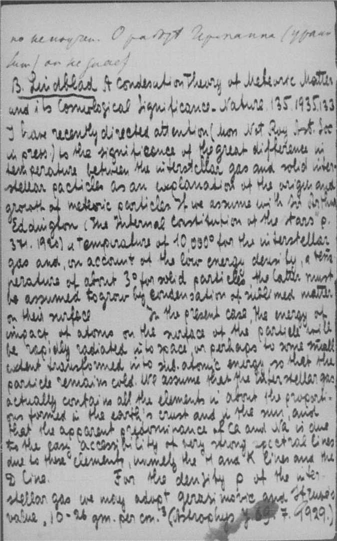 но не получ. О работ
B. Lindblad A Condesation Theory of Meteoric Matter
and its Cosmological Significance. Nature. 135. 1935. 133
I have recently directed attention (Mon Not Roy Ast. Soc
in press) to the significance of the great difference in
temperature between the interstellar gas and solid inter
stellar particles as an explanation of the origin and
growth of meteoric particles If we assume with Sir Arthur
Eddington (The Internal Constitution of the Stars" p.
371. 1926) a temperature of 10,000° for the interstellar
gas and, on account of the low energy density, a tem
perature of about 3° for solid particles, the latter must
be assumed to grow by condensation of sublimed matter
on their surface In the present case the energy of
impact of atoms on the surface of the particle will
be rapidly radiated into space, or perhaps to some small
extent transformed into sub.atomic energy so that the
particle remains cold. We assume that the interstellar gas
actually contains all the elements in about the proporti-
ons formed in the earth's crust and in the sun, and
that the apparent predominance of Ca and Na is due
to the easy accessibility of very strong spectral lines
due to these elements, namely the H and K lines and the
D line. For the density ρ of the inter
stellar gas we may adopt Gerasimovic and Struve's
value, 10-26 gm. per cm.³ (Astrophys 7. 1929.)